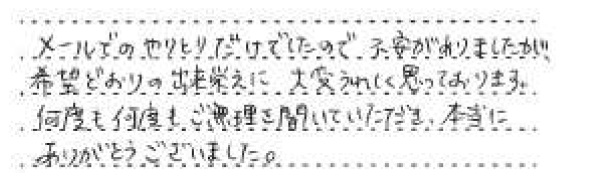 メールでのやりとりだけでしたので、不安がありましたが、
希望どおりの出来栄えに、大変うれしく思っております。
何度も何度もご無理を聞いていただき、本当に
ありがとうございました。